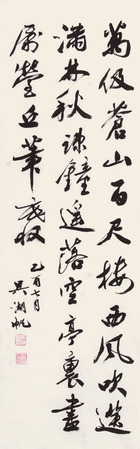 萬仞蒼山百尺樓西風吹送
滿林秋疎鐘遙落空亭裏盡
屬營丘筆底收
乙酉七月
吳湖帆